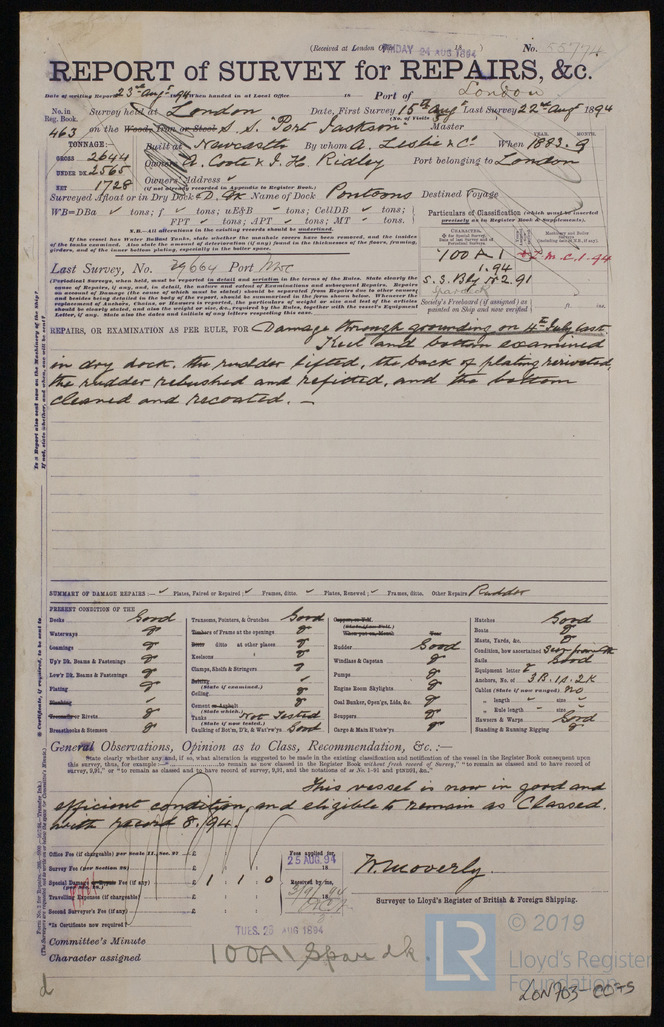 (Received at London Office FRIDAY 24 AUG 1894 18 ) No. 55774
REPORT of SURVEY for REPAIRS, &c.
Date of writing Report 23rd Augt 1894 when handed in at Local Office 18 Port of London
No. in Reg. Book. Survey held at London Date, First Survey 15th Augt Last Survey 22nd Augt 1894
(No. of Visits
463 on the Wood, Iron or Steel S. S. "Port Jackson" Master
TONNAGE:— Built at Newcastle By whom A. Leslie & Co When 1883. 9
YEAR. MONTH.
GROSS 2644 Owners A. Coote & J. H. Ridley Port belonging to London
UNDER DK 2565 Owners' Address
NET 1728 (If not already recorded in Appendix to Register Book.)
Surveyed Afloat or in Dry Dock D. Dk Name of Dock Pontoons Destined Voyage
WB=DBa tons; f tons; uE&B tons; CellDB tons;
FPT tons; APT tons; MT tons.
N.B.—All alterations in the existing records should be underlined.
If the vessel has Water Ballast Tanks, state whether the manhole covers have been removed, and the insides of the tanks examined. Also state the amount of deterioration (if any) found in the thicknesses of the floors, framing, girders, and of the inner bottom plating, especially in the boiler space.
Particulars of Classification (which must be inserted precisely as in Register Book & Supplements).
100 A. 1
1.94
L.M.C. 1.94
S.S. No 2.91
Spar dk
Society's Freeboard (if assigned) as painted on Ship and now verified ft. ins.
Last Survey, No. 29664 Port Nwc
(Periodical Surveys, when held, must be reported in detail and seriatim in the terms of the Rules. State clearly the cause of Repairs, if any, and, in detail, the nature and extent of Examinations and subsequent Repairs. Repairs on account of Damage (the cause of which must be stated) should be separated from Repairs due to other causes; and besides being detailed in the body of the report, should be summarized in the form shown below. Whenever the replacement of Anchors, Chains, or Hawsers is reported, the particulars of weight or size and test of the articles should be clearly stated, and also the weight or size, &c., required by the Rules together with the vessel's Equipment Letter, if any. State also the dates and initials of any letters respecting this case.
REPAIRS, OR EXAMINATION AS PER RULE, FOR Damage through grounding on 4th July last
Keel and bottom examined
in dry dock, the rudder lifted, the back of plating rerivetted,
the rudder rebushed and refitted, and the bottom
cleaned and recoated. —
SUMMARY OF DAMAGE REPAIRS:— Plates, Faired or Repaired; Frames, ditto. Plates, Renewed; Frames, ditto. Other Repairs Rudder
PRESENT CONDITION OF THE
Decks Good
Waterways gr
Coamings gr
Up'r Dk. Beams & Fastenings gr
Low'r Dk. Beams & Fastenings gr
Plating gr
Planking
Treenails or Rivets gr
Breasthooks & Stemson gr
Transoms, Pointers, & Crutches Good
Timbers of Frame at the openings gr
Ditto ditto at other places gr
Keelsons gr
Clamps, Shelfs & Stringers gr
Salting
(State if examined.)
Ceiling gr
Cement or Asphalt
(State which.)
Tanks Not Tested
(State if now tested.)
Caulking of Bot'm, D'k, & Wat'rw'ys Good
Rudder Good
Windlass & Capstan gr
Pumps gr
Engine Room Skylights gr
Coal Bunker, Open'gs, Lids, &c. gr
Scuppers gr
Cargo & Main H'tchw'ys gr
Hatches Good
Boats gr
Masts, Yards, &c. gr
Condition, how ascertained
Sails Good
Equipment letter
Anchors, No. of 3B. 1S. 2K
Cables (State if now ranged) No
„ length size
„ Rule length size
Hawsers & Warps Good
Standing & Running Rigging gr
General Observations, Opinion as to Class, Recommendation, &c.:—
This vessel is now in good and
efficient condition, and eligible to remain as Classed.
with record 8.94.
Office Fee (if chargeable) per Scale II., Sec. 27 £
Survey Fee (per Section 28) £
Special Damage or Repair Fee (if any) £ 1 : 1 : 0
(per Sec. 28.)
Travelling Expenses (if chargeable) £
Second Surveyor's Fee (if any) £
Fees applied for,
25 AUG. 94
Received by me,
W. Moverly.
Surveyor to Lloyd's Register of British & Foreign Shipping.
*Is Certificate now required?
TUES. 28 AUG 1894
Committee's Minute
Character assigned 100A1 Spar dk.
LR
© 2019
Lloyd's Register
Foundation
LON703-0075